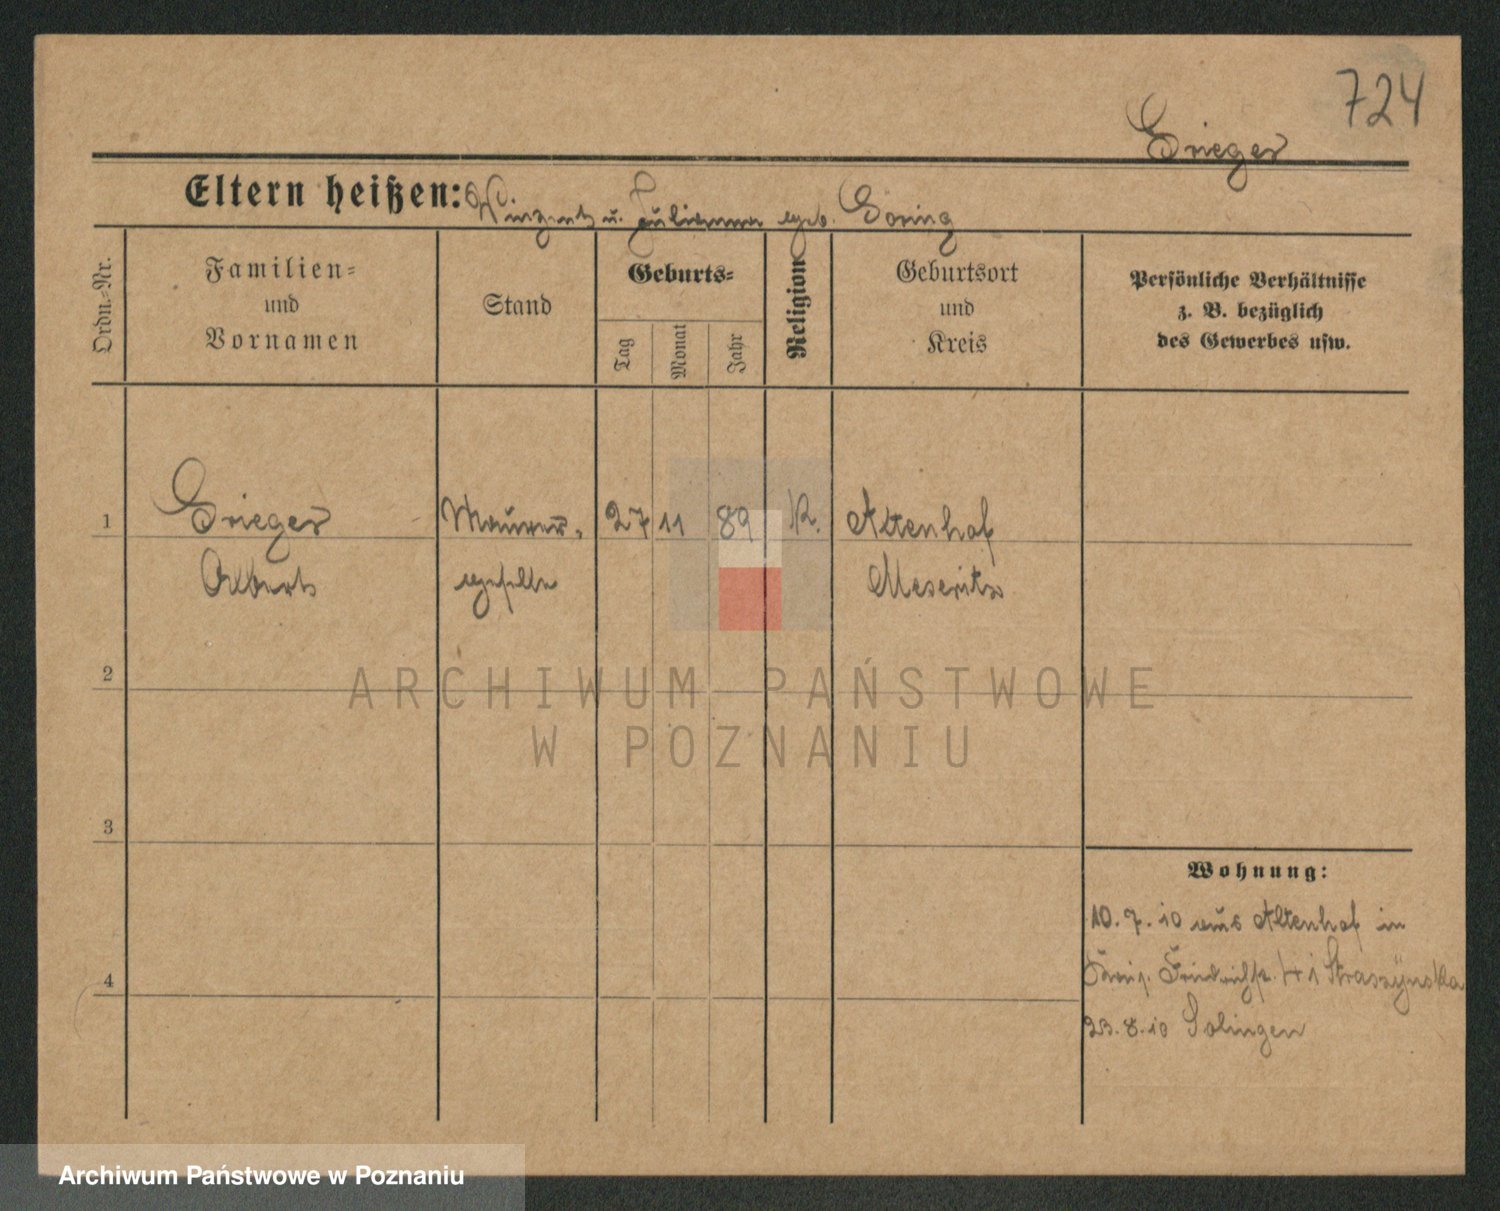 724
Grieger
Eltern heißen: Vinzent u. Julianna geb. Goring
Ordn.-Nr.
Familien-
und
Vornamen
Stand
Geburts-
Tag
Monat
Jahr
Religion
Geburtsort
und
Kreis
Persönliche Verhältnisse
z. B. bezüglich
des Gewerbes usw.
1 Grieger Maurer- 27 11 89 K. Altenhof
Albert geselle Meseritz
2
ARCHIWUM PAŃSTWOWE
W POZNANIU
3
Wohnung:
10.7.10 aus Altenhof in
4
Friedrichstr. 4 i Straszynska
23.8.10 Solingen
Archiwum Państwowe w Poznaniu